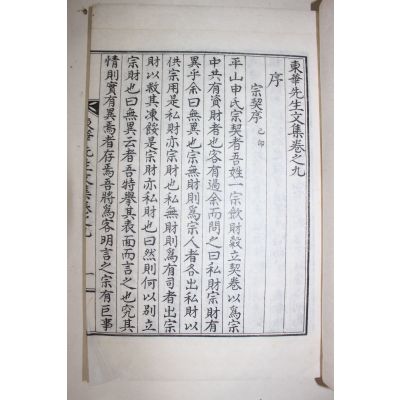 東華先生文集卷之九
序
宗契序 己卯
平山申氏宗契者吾姓一宗歛財穀立契卷以爲宗
中共有資財者也客有過余而問之曰私財宗財有
異乎余曰無異也宗無財則爲宗人者各出私財以
供宗用是私財亦宗財也私無財則爲有司者出宗
財以救其凍餒是宗財亦私財也曰然則何以別立
宗財也余曰無異云者吾特擧其表面而言之也究其
情則實有異焉者存焉吾將爲客明言之宗有巨事